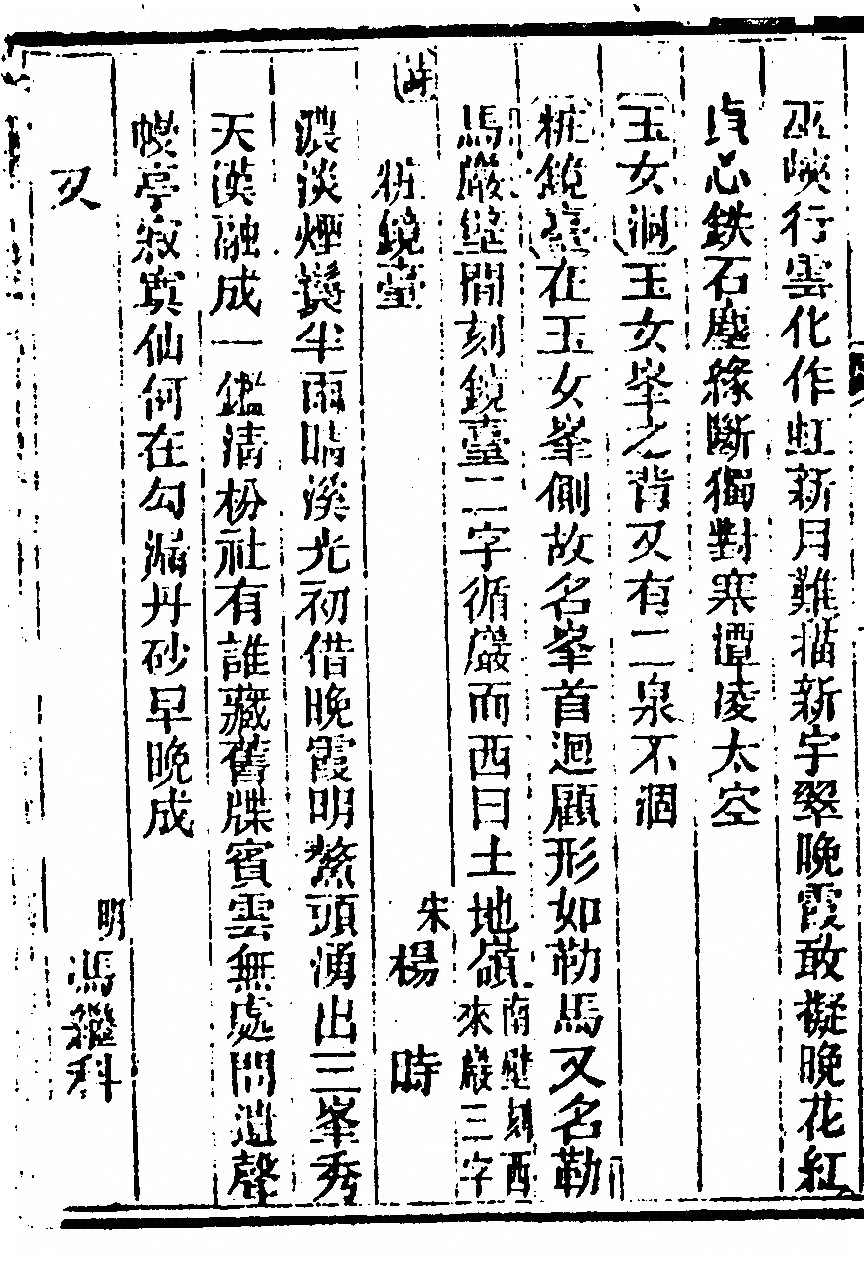 巫峽行雲化作虹新月難描新宇翠晚霞敢擬晚花紅
貞心鉄石塵緣斷獨對寒潭凌太空
玉女洞玉女峯之背又有二泉不涸
粧鏡臺在玉女峯側故名峯首迴顧形如勒馬又名勒
馬巖壁間刻鏡臺二字循巖而西曰土地嶺南壁刻西來巖三字
詩 粧鏡臺 宋 楊 時
濃淡煙鬟半雨晴溪光初借晚霞明鰲頭湧出三峯秀
天漢融成一鑑清枌社有誰藏舊牒賓雲無處問遺聲
幔亭寂寞仙何在勾漏丹砂早晚成
又 明 馮繼科